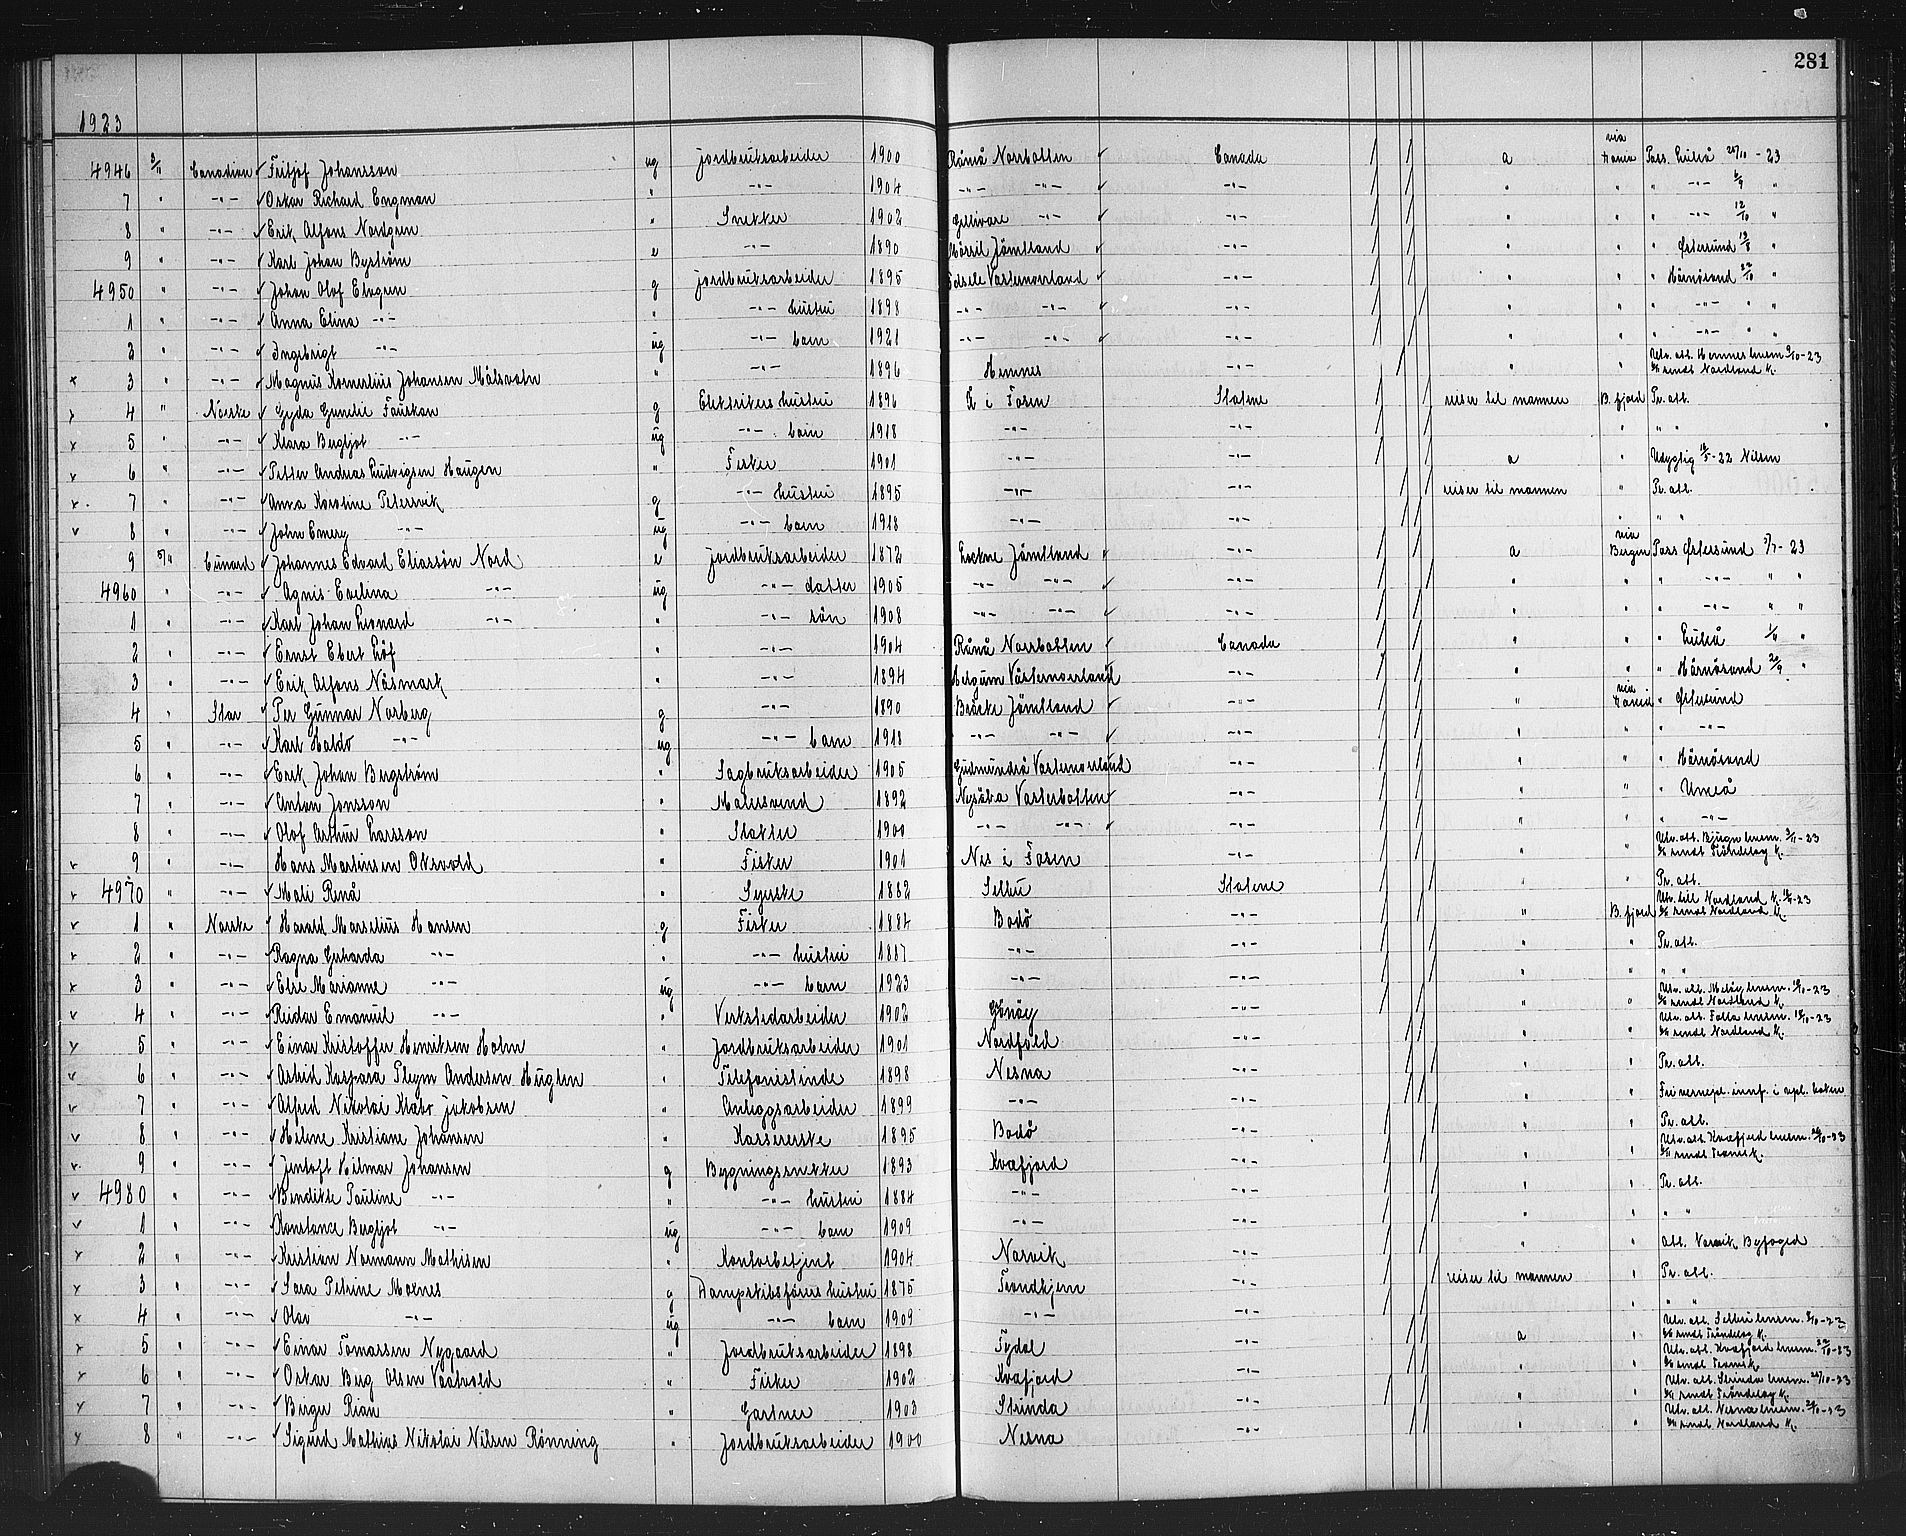 281
1923
4946 3/11 Canadian Fritjof Johansson ug jordbruksarbeider 1900 Råneå Norrbotten Canada a via Dania Pass. Luleå 26/10 - 23
7 " -"- Oskar Richard Engman " -"- 1904 -"- -"- -"- " " " -"- 6/9 "
8 " -"- Erik Alfons Nordgren " Snekker 1902 Gellivare -"- -"- " " " -"- 12/10 "
9 " -"- Karl Johan Byström e -"- 1890 Mörsil Jämtland -"- " " " Østersund 13/8 "
4950 " -"- Johan Olof Elvgren g jordbruksarbeider 1895 Västernorrland -"- " " " Härnösand 22/10 "
1 " -"- Anna Elina -"- " -"- hustru 1898 -"- -"- -"- " " " -"- " "
2 " -"- Ingebrigt -"- ug -"- barn 1921 -"- -"- -"- " " " -"- " "
3 " -"- Magnus Kornelius Johansen " -"- 1896 Hemnes -"- " " Utv. att. Hemnes lensm. 9/10-23
sendt Nordland K.
4 " Norske Gyda Gunelie Fauskan g Elektrikers hustru 1896 Å i Fosen Statene reiser til mannen B. fjord Pr. att.
5 " -"- Klara Bergljot -"- ug -"- barn 1918 -"- -"- " " "
6 " -"- Petter Andreas Ludvigsen Haugen " Fisker 1901 -"- -"- a " Udygtig -22 Nilsen
7 " -"- Anna Karoline Petersvik g -"- hustru 1895 -"- -"- reiser til mannen " Pr. att.
8 " -"- John Emery -"- ug -"- barn 1918 -"- -"- " " "
9 5/11 Cunard Johannes Edvard Eliassön Nord e jordbruksarbeider 1872 Lockne Jämtland -"- a via Bergen Pass Østersund -23
4960 " -"- Agnis Evelina -"- ug -"- datter 1905 -"- -"- -"- " " " -"- " "
1 " -"- Karl Johan Leonard -"- " -"- sön 1908 -"- -"- -"- " " " -"- " "
2 " -"- Ernst Ebert Löf " -"- 1904 Råneå Norrbotten Canada " " " Luleå "
3 " -"- Erik Alfons Näsmark " -"- 1894 Västernorrland -"- " " " Härnösand 20/9 "
4 " Star Per Gunnar Norberg g -"- 1890 Bräcke Jämtland -"- " via " Østersund
5 " -"- Karl Haldo -"- ug -"- barn 1918 -"- -"- -"- " " " -"-
6 " -"- Erik Johan Bergström " Sagbruksarbeider 1905 Gudmundrå Västernorrland -"- " " " Härnösand
7 " -"- Anton Jonsson " Malersvend 1892 Nysätra Västerbotten -"- " " " Umeå
8 " -"- Olof Arthur Larsson " 1900 -"- -"- -"- " " " -"-
9 " -"- Hans Martinsen Oksvold " Fisker 1901 Nes i Fosen -"- " " Utv. att. Bjugn lensm. 3/11-23
sendt Trøndelag K.
4970 " -"- Mali Renå " Syerske 1882 Selbu Statene " " Pr. att.
1 " Norske Harald Marselius Hansen g Fisker 1884 Bodö -"- " B. fjord Utv. till Nordland K. -23
sendt Nordland K.
2 " -"- Ragna Gerharda -"- " -"- hustru 1887 -"- -"- " " Pr. att.
3 " -"- Else Marianne -"- ug -"- barn 1923 -"- -"- " " "
4 " -"- Reidar Emanuel -"- " Verkstedarbeider 1902 -"- " " Utv. att. Meløy lensm. 10/10-23
sendt Nordland K.
5 " -"- Einar Kristoffer Henriksen Holm " Jordbruksarbeider 1901 Nordfold -"- " " Utv. att. Folla lensm. 18/10-23
sendt Nordland K.
6 " -"- Astrid Kaspara Pleym Andersen Huglen " Telefonistinde 1898 Nesna -"- " " Pr. att.
7 " -"- Alfred Nikolai Klabo Jakobsen " Anleggsarbeider 1899 -"- -"- " " Fri vernepl. innf. i
8 " -"- Helene Kristiane Johansen " Kassererske 1895 Bodö -"- " " Pr. att.
9 " -"- Jentoft Hilmar Johansen g Bygningssnekker 1893 Kvæfjord -"- " " Utv. att. Kvæfjord lensm. 26/10-23
sendt
4980 " -"- Bendikte Pauline -"- " -"- hustru 1884 -"- -"- " " Pr. att.
1 " -"- Konstance Bergljot -"- ug -"- barn 1909 -"- -"- " " "
2 " -"- Kristian Normann Mathisen " Kontorbetjent 1904 Narvik -"- " " att. Narvik Byfoged
3 " -"- Sara Petrine Moenes g Dampskibsförers hustru 1875 Trondhjem -"- reiser til mannen " Pr. att.
4 " -"- Olav -"- ug -"- barn 1909 -"- -"- " " "
5 " -"- Einar Tomassen Nygaard " Jordbruksarbeider 1898 Tydal -"- a " Utv. att. Selbu lensm. -23
sendt Trøndelag K.
6 " -"- Oskar Berg Olsen Vaatvold " Fisker 1902 Kvæfjord -"- " " Utv. att. Kvæfjord lensm. 22/10-23
sendt
7 " -"- Birger Rian " Gartner 1903 Strinda -"- " " Utv. att. Strinda lensm. 26/10-23
sendt Trøndelag K.
8 " -"- Sigurd Mathias Nikolai Nilsen Rönning " Jordbruksarbeider 1900 Nesna -"- " " Utv. att. Nesna lensm. -23
sendt Nordland K.